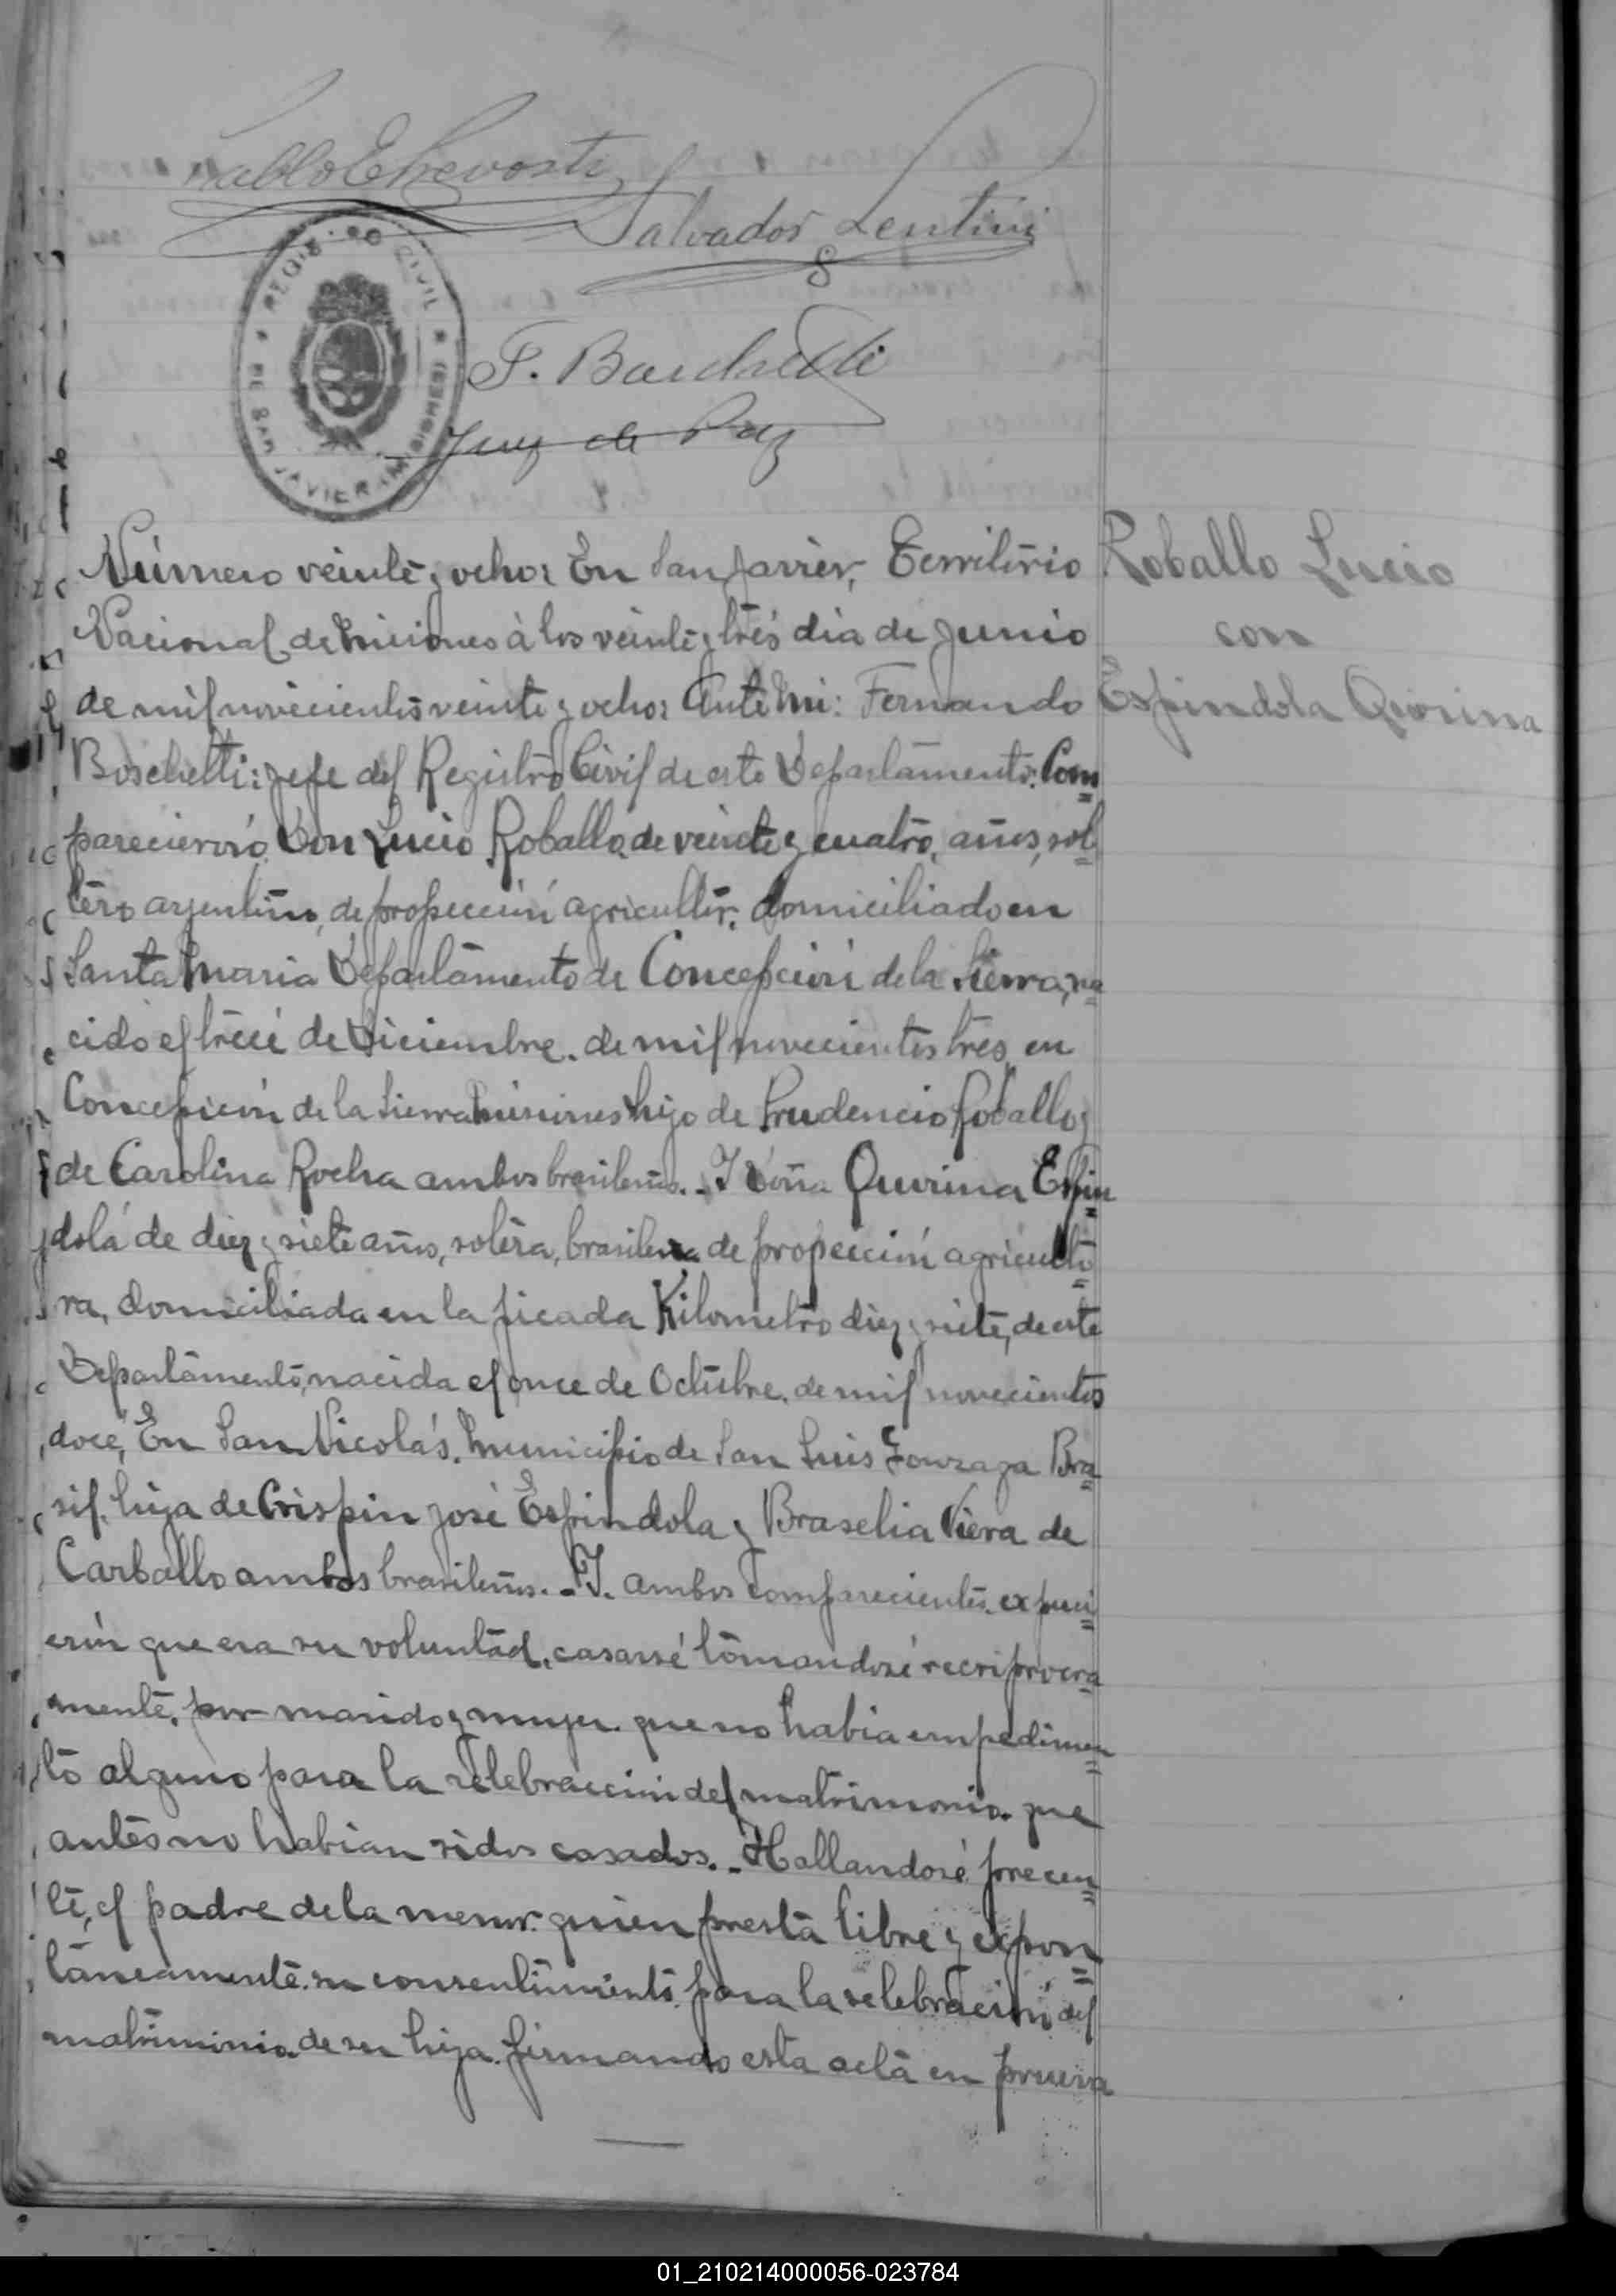 Pablo Echevost
Salvador Lentini
REGISTRO CIVIL
DE SAN JAVIER (MISIONES)
F. Boschetti
Juez de Paz
Número veinte y ocho: En San Javier, Territorio
Nacional de Miciones à los veinte y trés dia de Junio
de mil novecientos veinte y ocho: Ante Mi: Fernando
Boschetti: Jefe del Registro Civil de este Departamento: Com=
parecieron Don Lucio Roballo, de veinte y cuatro, años, sol=
tero argentino, de propeccion agricultor, domiciliado en
Santa Maria Departamento de Concepcion de la Sierra, na=
cido el trece de Diciembre. de mil novecientos tres, en
Concepcion de la Sierra Misiones hijo de Prudencio Roballo y
de Carolina Rocha ambos brasileños. - Y Doña Quirina Espin=
dola de diez y siete años, soltera, brasilena de propeccion agriculto=
ra, domiciliada en la picada Kilometro diez y siete, de este
Departamento, nacida el once de Octubre. de mil novecientos
doce, En San Nicolás. Municipio de San Luis Gonzaga Bra=
sil. hija de Crispin José Espindola y Braselia Viera de
Carballo ambos brasileños. - Y. ambos comparecientes. expuci=
eron que era su voluntad, casarsé tomandosé recriprocra=
mente, por marido y mujer. que no habia empedimen=
to alguno para la celebraccion del matrimonio. que
antes no habian sidos casados. - Hallandosé precen=
te, el padre de la menor. quien presta libre y expon=
taneamente. su consentimiento. para la celebracion del
matrimonio de su hija. firmando esta acta en prueva
Roballo Lucio
con
Espindola Quirina
01_210214000056-023784